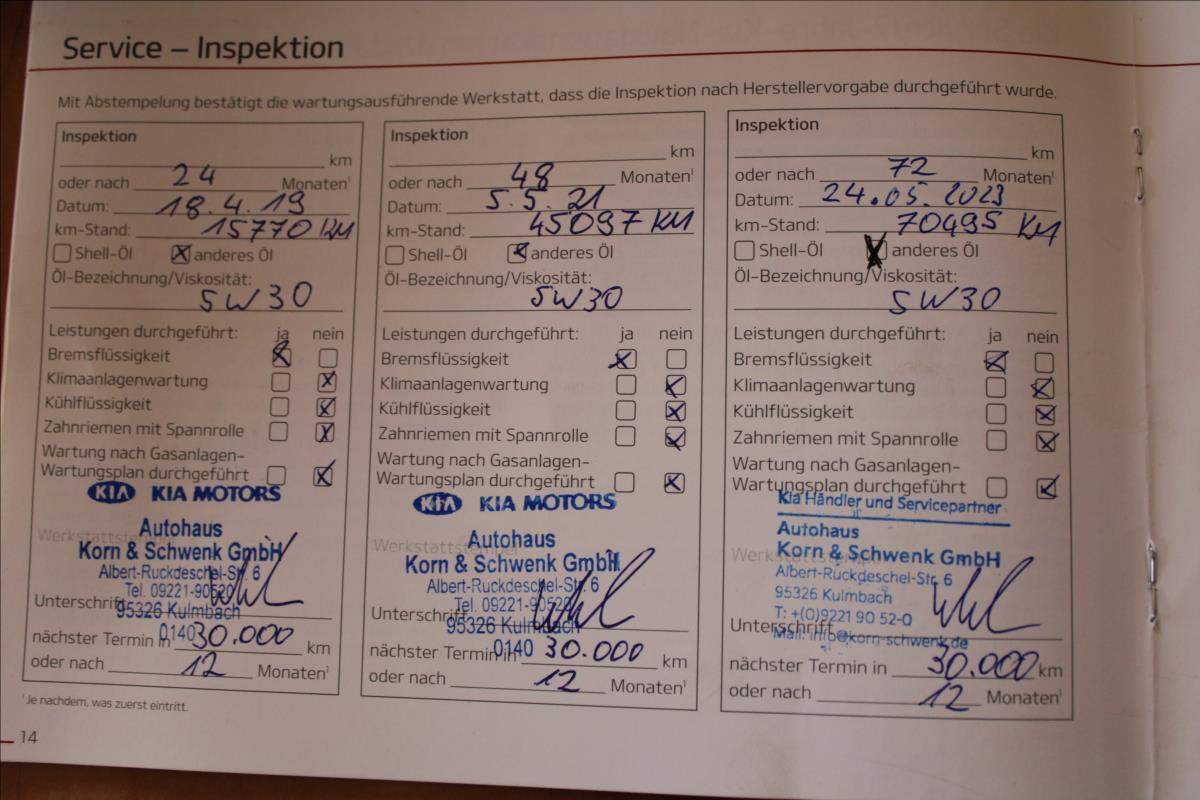 Service – Inspektion
Mit Abstempelung bestätigt die wartungsausführende Werkstatt, dass die Inspektion nach Herstellervorgabe durchgeführt wurde.
Inspektion
km
oder nach 24 Monaten¹
Datum: 18.4.19
km-Stand: 15770 KM
Shell-Öl anderes Öl
Öl-Bezeichnung/Viskosität:
5W30
Leistungen durchgeführt: ja nein
Bremsflüssigkeit
Klimaanlagenwartung
Kühlflüssigkeit
Zahnriemen mit Spannrolle
Wartung nach Gasanlagen-
Wartungsplan durchgeführt
KIA KIA MOTORS
Autohaus
Werkstattstempel
Korn & Schwenk GmbH
Albert-Ruckdeschel-Str. 6
Tel. 09221-90520
Unterschrift
95326 Kulmbach
0140
nächster Termin in 30.000 km
oder nach 12 Monaten¹
Inspektion
km
oder nach 48 Monaten¹
Datum: 5.5.21
km-Stand: 45097 KM
Shell-Öl anderes Öl
Öl-Bezeichnung/Viskosität:
5W30
Leistungen durchgeführt: ja nein
Bremsflüssigkeit
Klimaanlagenwartung
Kühlflüssigkeit
Zahnriemen mit Spannrolle
Wartung nach Gasanlagen-
Wartungsplan durchgeführt
KIA KIA MOTORS
Autohaus
Werkstattstempel
Korn & Schwenk GmbH
Albert-Ruckdeschel-Str. 6
Tel. 09221-90520
Unterschrift
95326 Kulmbach
0140
nächster Termin in 30.000 km
oder nach 12 Monaten¹
Inspektion
km
oder nach 72 Monaten¹
Datum: 24.05.2023
km-Stand: 70495 KM
Shell-Öl anderes Öl
Öl-Bezeichnung/Viskosität:
5W30
Leistungen durchgeführt: ja nein
Bremsflüssigkeit
Klimaanlagenwartung
Kühlflüssigkeit
Zahnriemen mit Spannrolle
Wartung nach Gasanlagen-
Wartungsplan durchgeführt
Kia Händler und Servicepartner
Autohaus
Werkstattstempel
Korn & Schwenk GmbH
Albert-Ruckdeschel-Str. 6
95326 Kulmbach
T: +(0)9221 90 52-0
Unterschrift
Mail: info@korn-schwenk.de
nächster Termin in 30.000 km
oder nach 12 Monaten¹
¹Je nachdem, was zuerst eintritt.
14